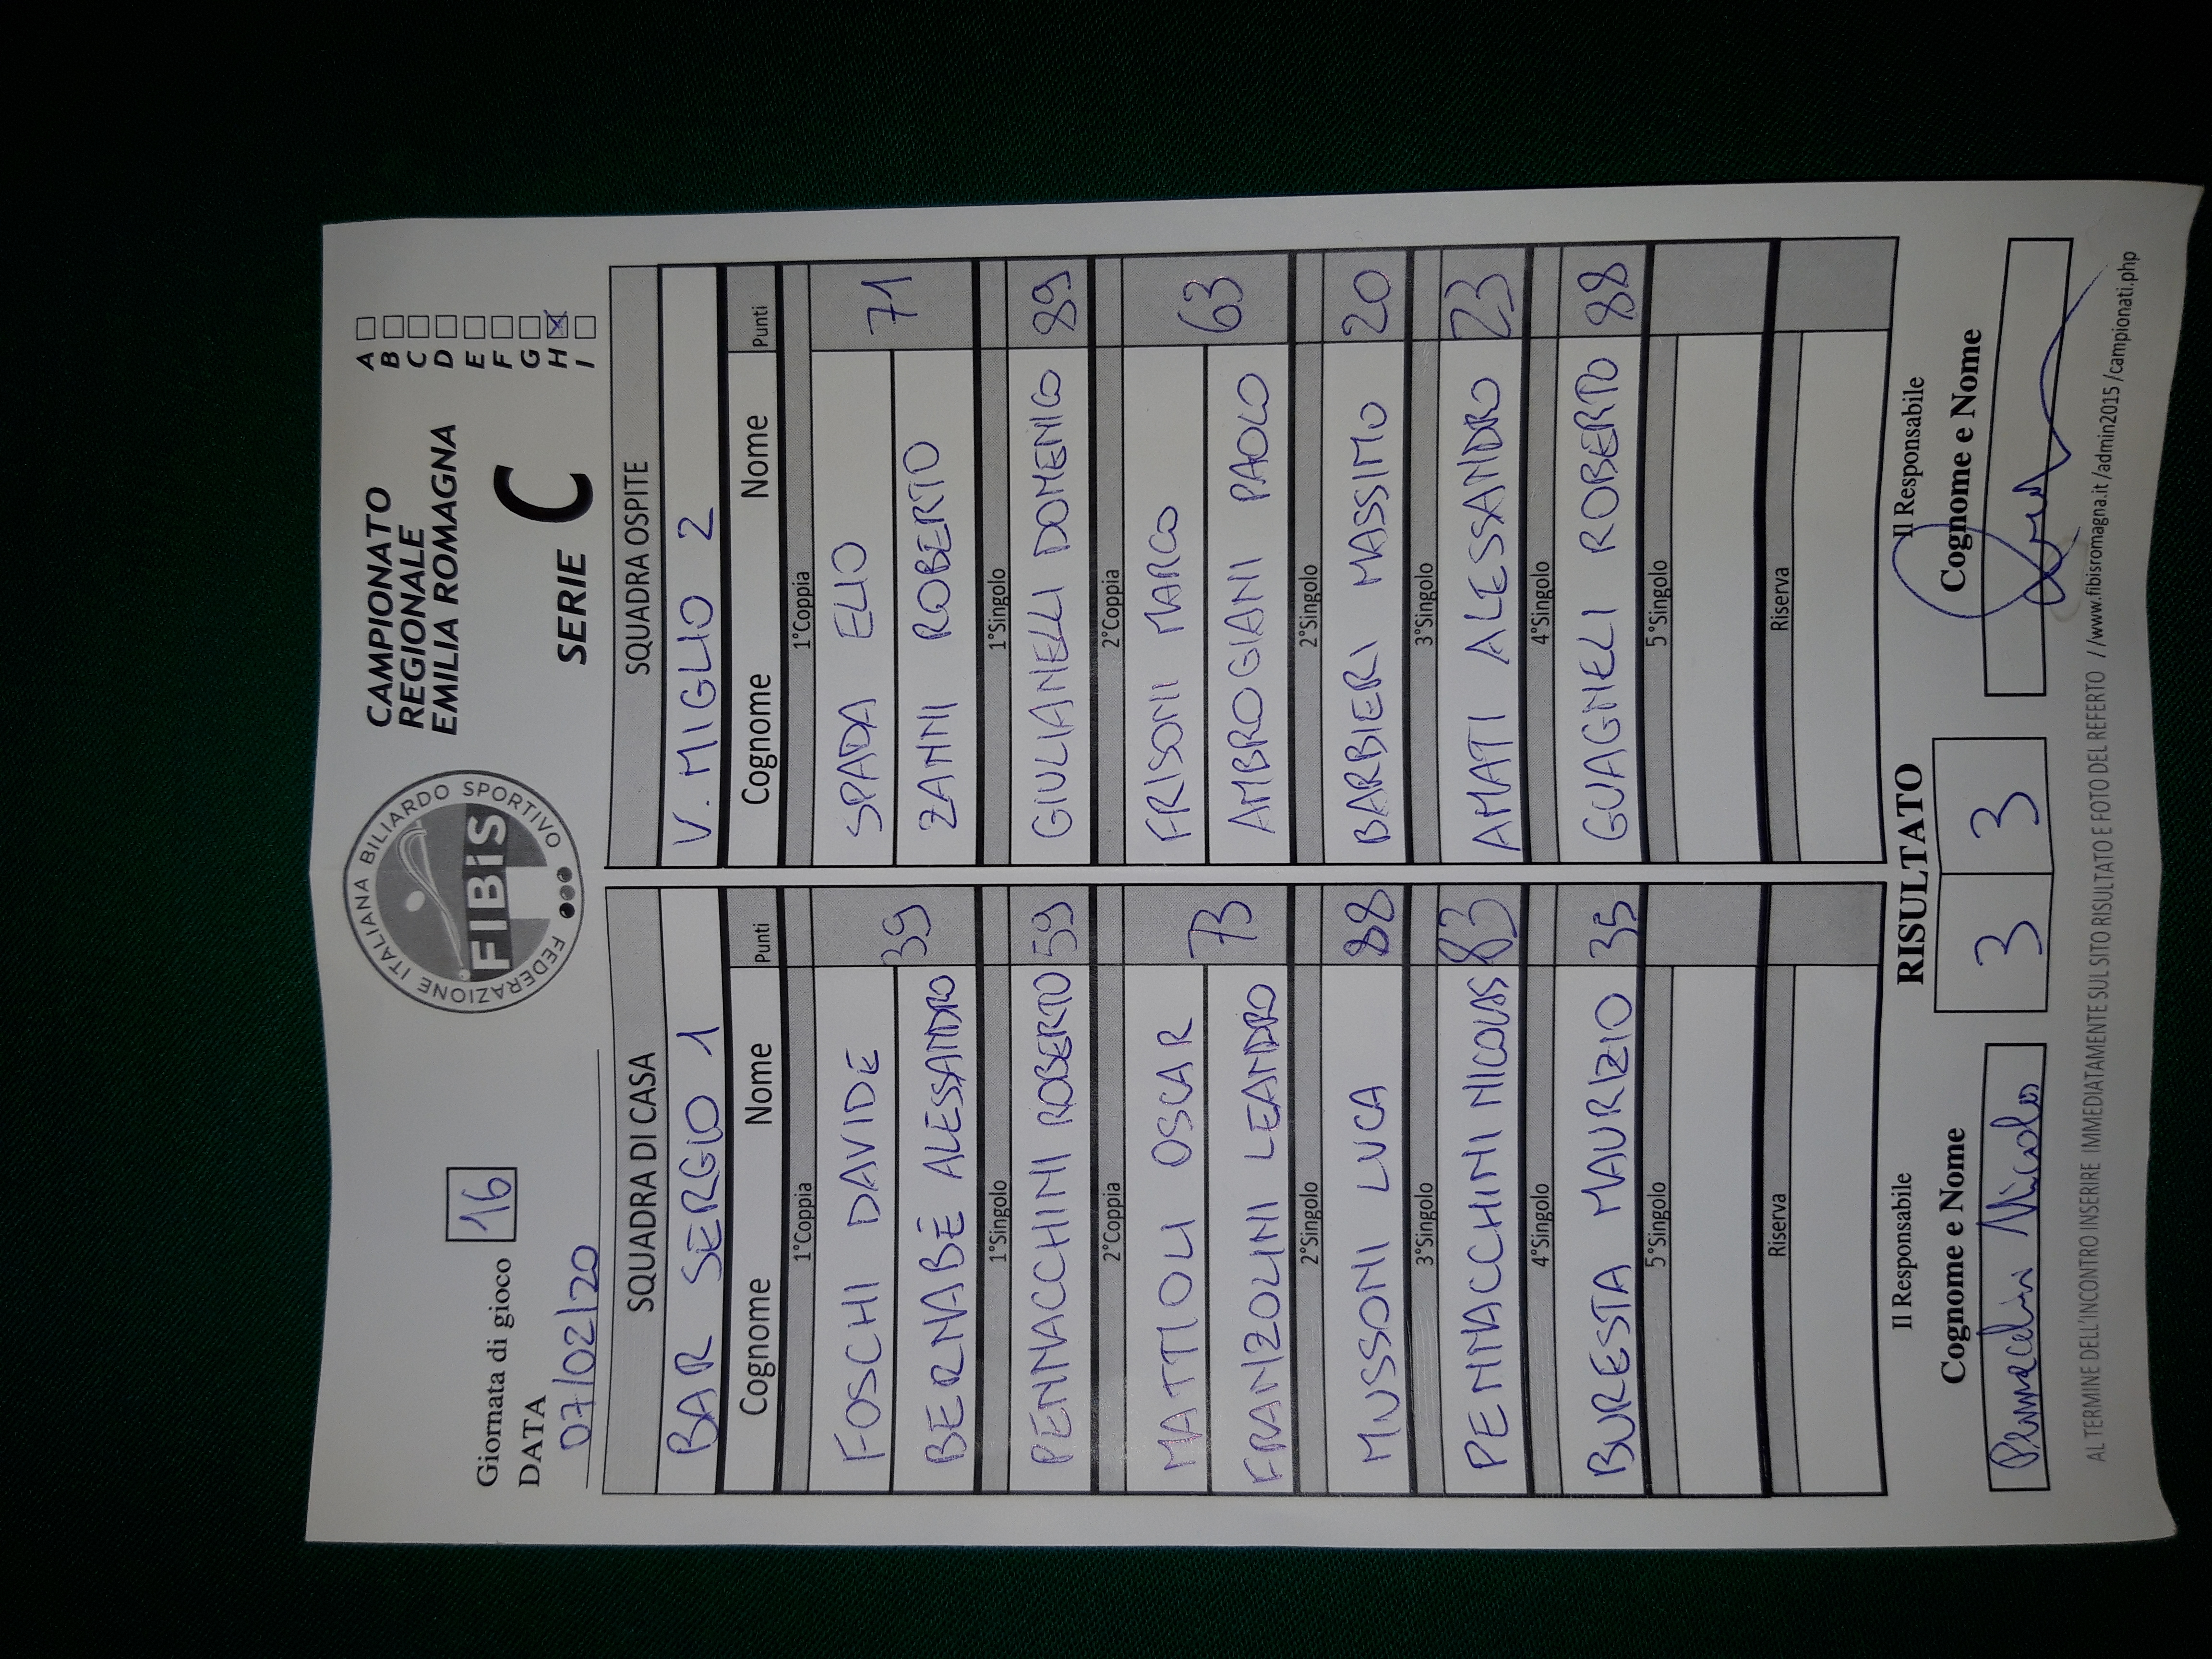 FEDERAZIONE ITALIANA BILIARDO SPORTIVO
FIBiS
CAMPIONATO
REGIONALE
EMILIA ROMAGNA
SERIE C
A
B
C
D
E
F
G
H X
I
Giornata di gioco 16
DATA
07/02/20
SQUADRA DI CASA
BAR SERGIO 1
Cognome Nome Punti
1°Coppia
FOSCHI DAVIDE
BERNABÈ ALESSANDRO 39
1°Singolo
PENNACCHINI ROBERTO 59
2°Coppia
MATTIOLI OSCAR
FRANZOLINI LEANDRO 73
2°Singolo
MUSSONI LUCA 88
3°Singolo
PENNACCHINI 83
4°Singolo
BURESTA MAURIZIO 35
5°Singolo
Riserva
SQUADRA OSPITE
V. MIGLIO 2
Cognome Nome Punti
1°Coppia
SPADA ELIO
ZANNI ROBERTO 71
1°Singolo
GIULIANELLI DOMENICO 89
2°Coppia
FRISONI MARCO
AMBROGIANI PAOLO 63
2°Singolo
BARBIERI MASSIMO 20
3°Singolo
AMATI ALESSANDRO 23
4°Singolo
GUAGNELI ROBERTO 88
5°Singolo
Riserva
Il Responsabile
Cognome e Nome
RISULTATO
3 3
Il Responsabile
Cognome e Nome
AL TERMINE DELL'INCONTRO INSERIRE IMMEDIATAMENTE SUL SITO RISULTATO E FOTO DEL REFERTO //www.fibisromagna.it/admin2015/campionati.php